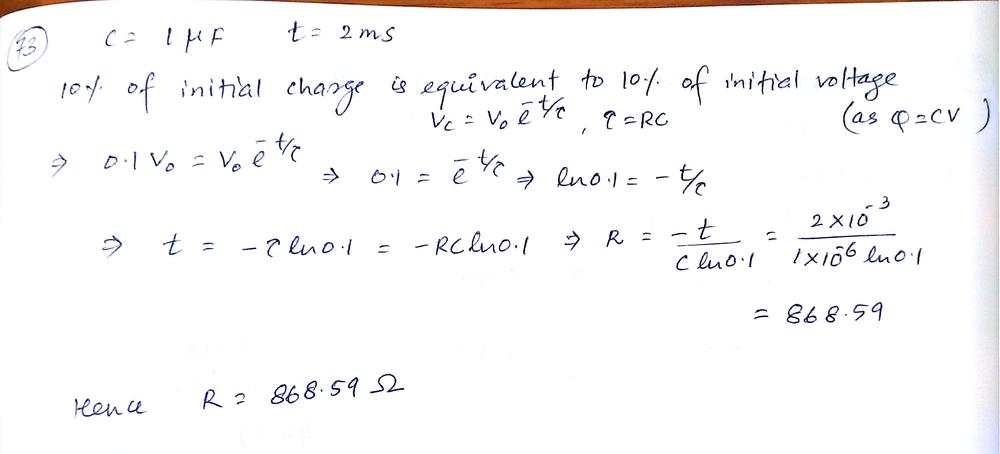 73 C = 1 μF t = 2 ms
10% of initial charge is equivalent to 10% of initial voltage
Vc = V₀ e^(-t/τ) , τ = RC (as Q = CV)
⇒ 0.1 V₀ = V₀ e^(-t/τ) ⇒ 0.1 = e^(-t/τ) ⇒ ln 0.1 = - t/τ
⇒ t = -τ ln 0.1 = -RC ln 0.1 ⇒ R = -t / (C ln 0.1) = 2 × 10⁻³ / (1 × 10⁻⁶ ln 0.1)
= 868.59
Hence R = 868.59 Ω